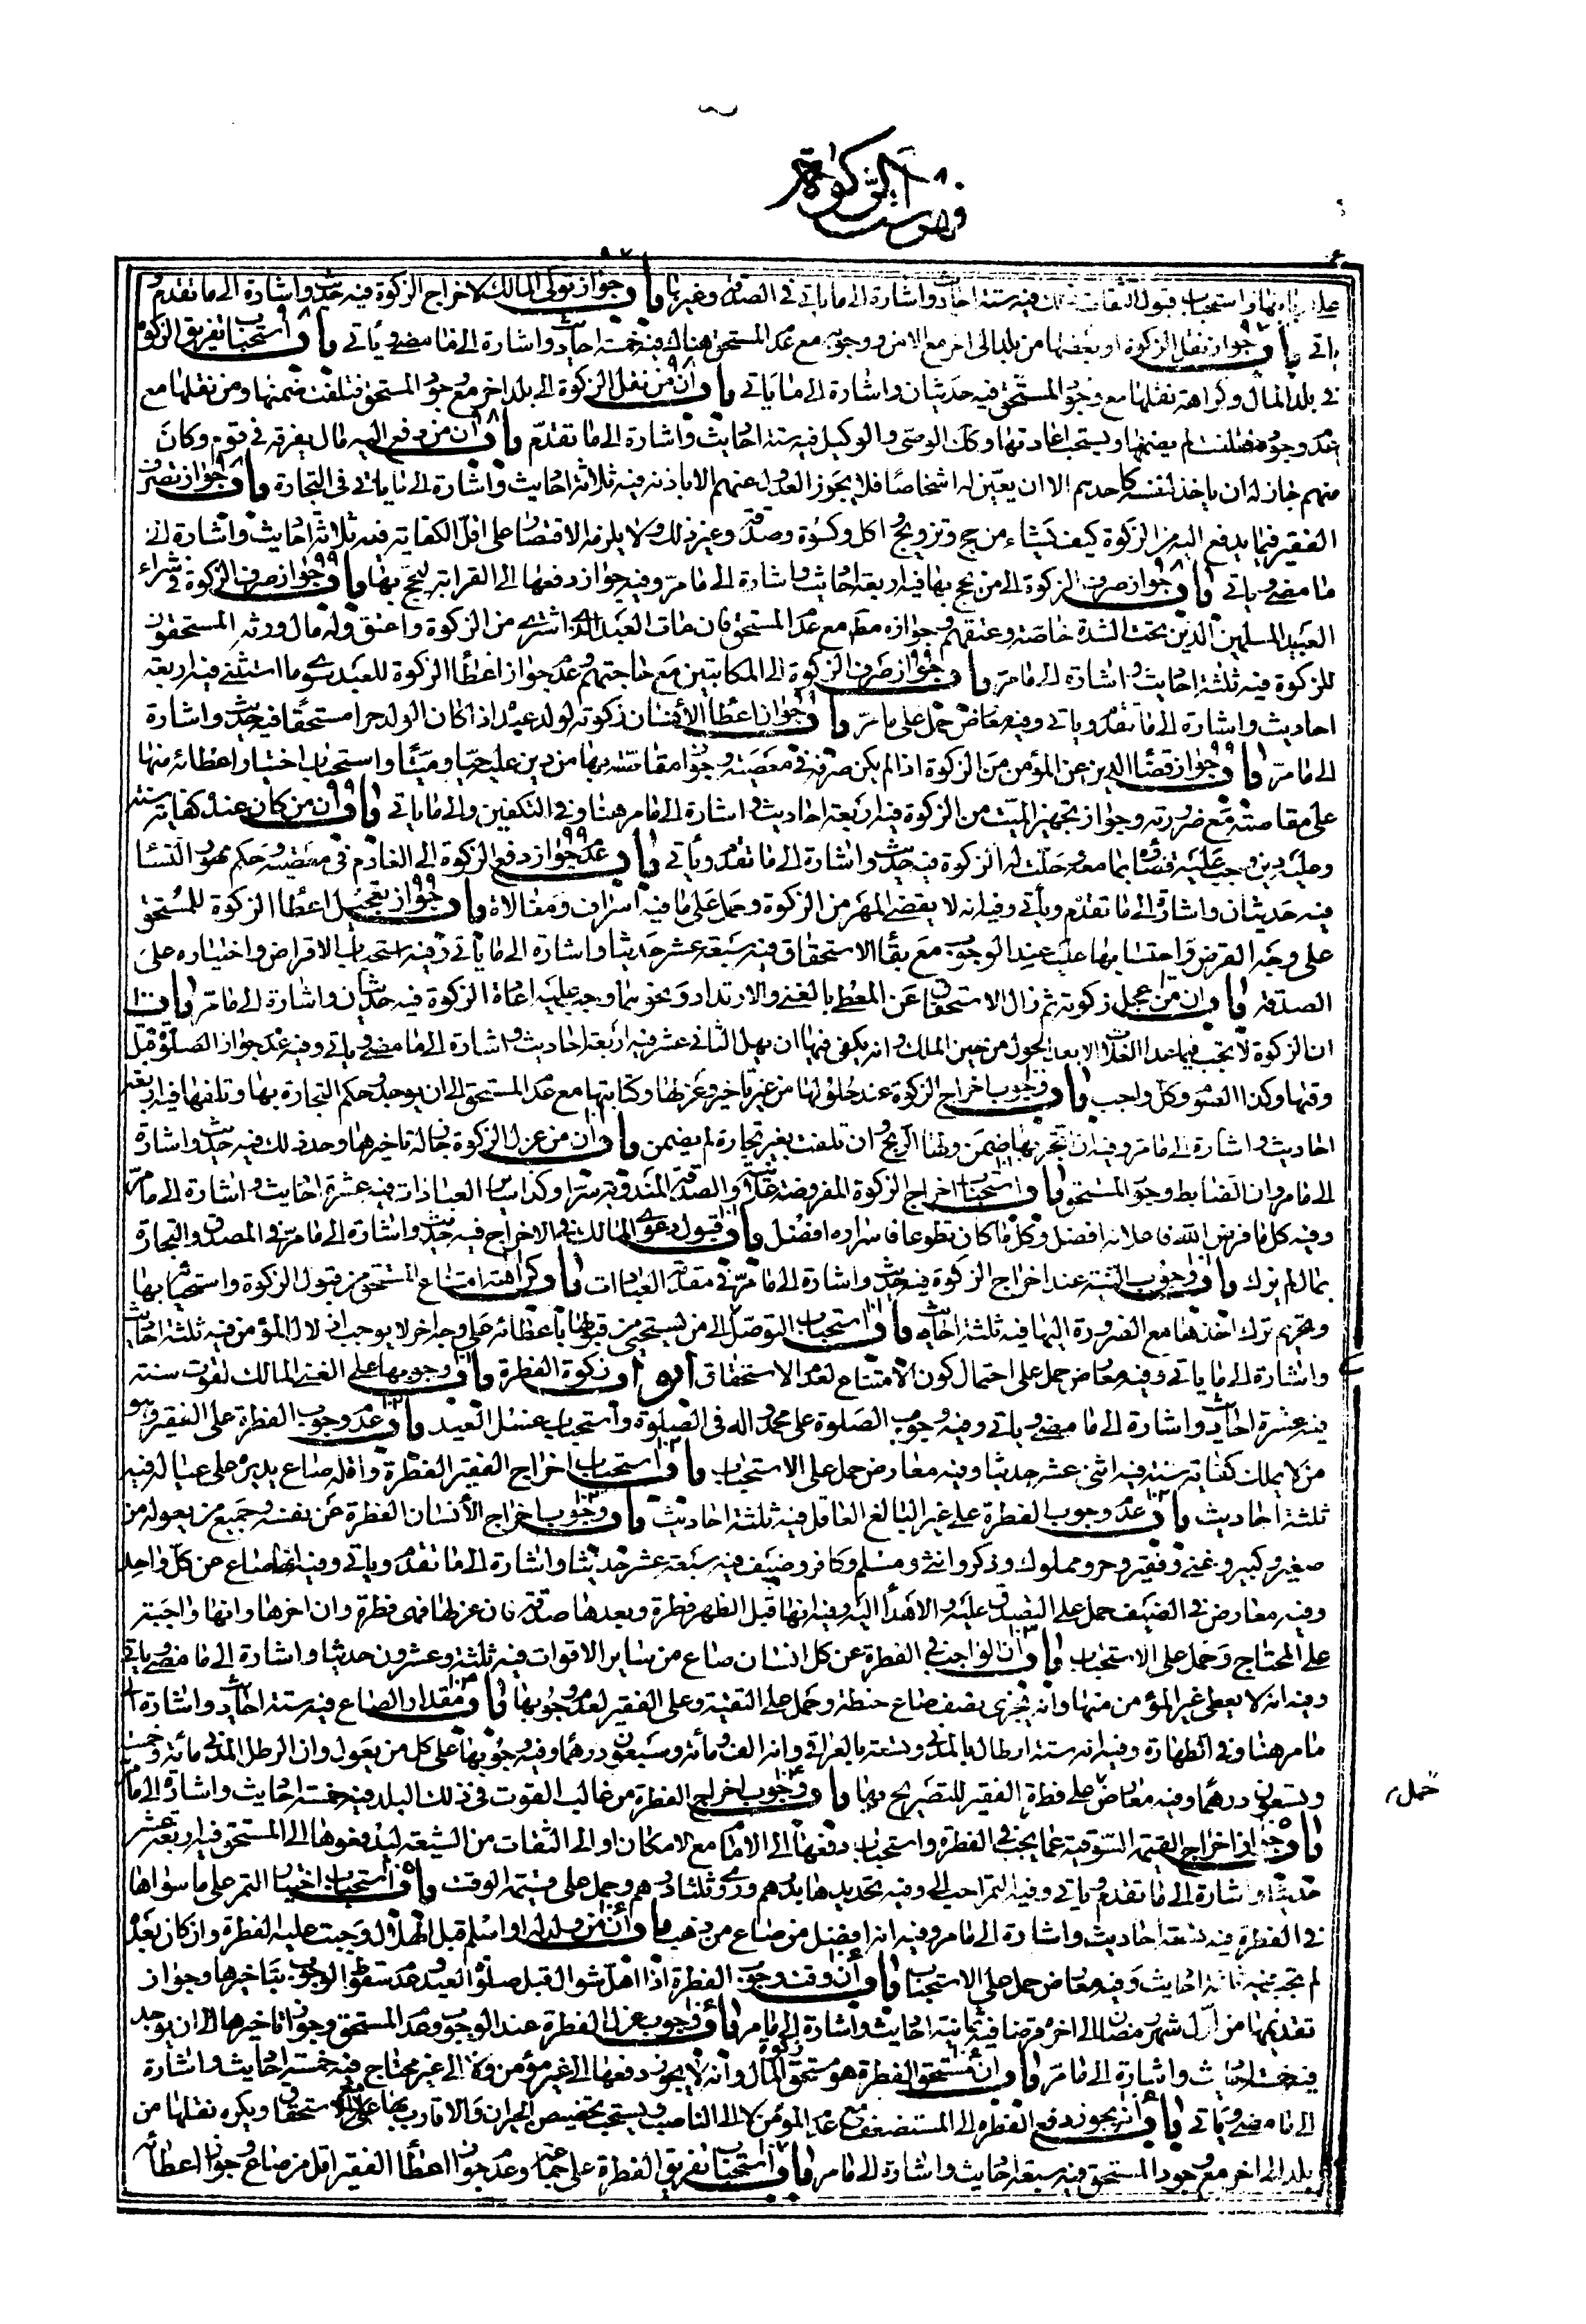 فهرست الزكوة
واستحباب قبول الثقات ذلك فيه ستة احاديث واشارة الى ما ياتى فى الصدقة وغيرها باب جواز تولى المالك لاخراج الزكوة فيه حديث واشارة الى ما تقدم و
ياتى باب جواز نقل الزكوة او بعضها من بلد الى اخر مع الامن ووجوبه مع عدم المستحق هناك فيه خمسة احاديث واشارة الى ما مضى وياتى باب استحباب تفريق الزكوة
فى بلد المال وكراهة نقلها مع وجود المستحق فيه حديثان واشارة الى ما ياتى باب ان من نقل الزكوة الى بلد اخر مع وجود المستحق فتلفت ضمنها ومن نقلها مع
عدم وجوده فتلفت لم يضمنها ويستحب اعادتها وكذا الوصى والوكيل فيه ستة احاديث واشارة الى ما تقدم باب ان من دفع اليه مال يفرقه فى قوم وكان
منهم جاز له ان ياخذ لنفسه كاحدهم الا ان يعين له اشخاصا فلا يجوز العدول عنهم الا باذنه فيه ثلاثة احاديث واشارة الى ما ياتى فى التجارة باب جواز تصرف
الفقير فيما يدفع اليه من الزكوة كيف يشاء من حج وتزويج واكل وكسوة وصدقة وغير ذلك ولا يلزمه الاقتصار على اقل الكفاية فيه ثلاثة احاديث واشارة الى
ما مضى وياتى باب جواز صرف الزكوة الى من يحج بها فيه اربعة احاديث واشارة الى ما مر وفيه جواز دفعها الى القرابة ليحج بها باب جواز صرف الزكوة فى شراء
العبيد المسلمين الذين تحت الشدة خاصة وعتقهم وجوازه مطم مع عدم المستحق فان مات العبد الذى اشترى من الزكوة واعتق وله مال ورثه المستحقون
للزكوة فيه ثلثة احاديث واشارة الى ما مر باب جواز صرف الزكوة الى المكاتبين مع حاجتهم وعدم جواز اعطاء الزكوة للعبد سوى ما استثنى فيه اربعة
احاديث واشارة الى ما تقدم وياتى وفيه معارض حمل على ما مر باب جواز اعطاء الانسان زكوته لولد عبده اذا كان الولد حرا مستحقا فيه حديث واشارة
الى ما مر باب جواز قضاء الدين عن المؤمن من الزكوة اذا لم يكن صرفه فى معصية وجواز مقاصته بها من دين عليه حيا وميتا واستحباب اختيار اعطائه منها
على مقاصته مع ضرورته وجواز تجهيز الميت من الزكوة فيه اربعة احاديث واشارة الى ما مر هنا وفى التكفين والى ما ياتى باب ان من كان عنده كفاية سنته
وعليه دين وجب عليه قضاؤه بما معه وحلت له الزكوة فيه حديث واشارة الى ما تقدم وياتى باب عدم جواز دفع الزكوة الى الغارم فى معصية وحكم مهور النساء
فيه حديثان واشارة الى ما تقدم وياتى وفيه انه لا يقضى المهر من الزكوة وحمل على ما فيه اسراف ومغالاة باب جواز تعجيل اعطاء الزكوة للمستحق
على وجه القرض واحتسابها عليه عند الوجوب مع بقاء الاستحقاق فيه سبعة عشر حديثا واشارة الى ما ياتى وفيه استحباب الاقراض واختياره على
الصدقة باب ان من عجل زكوته ثم زال الاستحقاق عن المعطى بالغنى والارتداد ونحوهما وجب عليه اعادة الزكوة فيه حديثان واشارة الى ما مر باب
ان الزكوة لا تجب فيما عدا الغلات الا بعد الحول من حين الملك وانه يكفى فيها ان يهل الثانى عشر فيه اربعة احاديث واشارة الى ما مضى وياتى وفيه عدم جواز الصلوة قبل
وقتها وكذا الصوم وكل واجب باب وجوب اخراج الزكوة عند حلولها من غير تاخير وعزلها وكتابتها مع عدم المستحق الى ان يوجد وحكم التجارة بها وتلفها فيه اربعة
احاديث واشارة الى ما مر وفيه ان تجر بها ضمن ولها الربح وان تلفت بغير تجارة لم يضمن باب ان من عزل الزكوة جاز له تاخيرها وحد ذلك فيه حديث واشارة
الى ما مر وان الضابط وجود المستحق باب استحباب اخراج الزكوة المفروضة علانية والصدقة المندوبة سرا وكذا ساير العبادات فيه عشرة احاديث واشارة الى ما مر
وفيه كل ما فرض الله فاعلانه افضل وكل ما كان تطوعا فاسراره افضل باب قبول دعوى المالك فى الاخراج فيه حديث واشارة الى ما مر فى المصدق والتجارة
بمال لم يزك باب وجوب النية عند اخراج الزكوة فيه حديث واشارة الى ما مر فى مقدمة العبادات باب كراهة امتناع المستحق من قبول الزكوة واستحيائه بها
وتحريم ترك اخذها مع الضرورة اليها فيه ثلثة احاديث باب استحباب التوصل الى من يستحيى من قبولها باعطائه على وجه اخر لا يوجب اذلال المؤمن فيه ثلثة احاديث
واشارة الى ما ياتى وفيه معارض حمل على احتمال كون الامتناع لعدم الاستحقاق ابواب زكوة الفطرة باب وجوبها على الغنى المالك لقوت سنته
فيه عشرة احاديث واشارة الى ما مضى وياتى وفيه وجوب الصلوة على محمد واله فى الصلوة واستحباب غسل العيد باب عدم وجوب الفطرة على الفقير وهو
من لا يملك كفاية سنته فيه اثنى عشر حديثا وفيه معارض حمل على الاستحباب باب استحباب اخراج الفقير الفطرة واقله صاع يديره على عياله فيه
ثلثة احاديث باب عدم وجوب الفطرة على غير البالغ العاقل فيه ثلثة احاديث باب وجوب اخراج الانسان الفطرة عن نفسه وجميع من يعوله من
صغير وكبير وغنى وفقير وحر ومملوك وذكر وانثى ومسلم وكافر وضيف فيه سبعة عشر حديثا واشارة الى ما تقدم وياتى وفيه انها صاع عن كل واحد
وفيه معارض فى الضيف حمل على التصدق عليه والاهداء اليه وفيه انها قبل الظهر فطرة وبعدها صدقة فان عزلها فهى فطرة وان اخرها وانها واجبة
على المحتاج وحمل على الاستحباب باب ان الواجب فى الفطرة عن كل انسان صاع من ساير الاقوات فيه ثلثة وعشرون حديثا واشارة الى ما مضى وياتى
وفيه انه لا يعطى غير المؤمن منها وانه يجزى نصف صاع حنطة وحمل على التقية وعلى الفقير لعدم وجوبها باب مقدار الصاع فيه ستة احاديث واشارة الى
ما مر هنا وفى الطهارة وفيه انه ستة ارطال بالمدنى وتسعة بالعراقى وانه الف ومائة وسبعون درهما وفيه وجوبها على كل من يعول وان الرطل المدنى مائة وخمسة
وتسعون درهما وفيه معارض على فطرة الفقير للتصريح بها باب وجوب اخراج الفطرة من غالب القوت فى ذلك البلد فيه خمسة احاديث واشارة الى ما مر
حمل
باب جواز اخراج القيمة السوقية عما يجب فى الفطرة واستحباب دفعها الى الامام مع الامكان او الى الثقات من الشيعة ليدفعوها الى المستحق فيه اربعة عشر
حديثا واشارة الى ما تقدم وياتى وفيه التمر احب الى وفيه تحديدها بدرهم وروى ثلثا درهم وحمل على قيمة الوقت باب استحباب اختيار التمر على ما سواها
فى الفطرة فيه تسعة احاديث واشارة الى ما مر وفيه انه افضل من صاع من ذهب باب ان من ولد له او اسلم قبل الهلال وجبت عليه الفطرة وان كان بعد
لم تجب فيه ثلثة احاديث وفيه معارض حمل على الاستحباب باب ان وقت وجوب الفطرة اذا اهل شوال قبل صلوة العيد وعدم سقوط الوجوب بتاخيرها وجواز
تقديمها من اول شهر رمضان الى اخره قرضا فيه ثمانية احاديث واشارة الى ما مر باب وجوب عزل الفطرة عند الوجوب وعدم المستحق وجواز تاخيرها الى ان يوجد
فيه خمسة احاديث واشارة الى ما مر باب ان مستحق الفطرة هو مستحق زكوة المال وانه لا يجوز دفعها الى غير مؤمن ولا الى غير محتاج فيه خمسة احاديث واشارة
الى ما مضى وياتى باب انه يجوز دفع الفطرة الى المستضعف مع عدم المؤمن لا الى الناصب ويستحب تخصيص الجيران والاقارب بها مع الاستحقاق ويكره نقلها من
بلد الى اخر مع وجود المستحق فيه سبعة احاديث واشارة الى ما مر باب استحباب تفريق الفطرة على جماعة وعدم جواز اعطاء الفقير اقل من صاع وجواز اعطائه